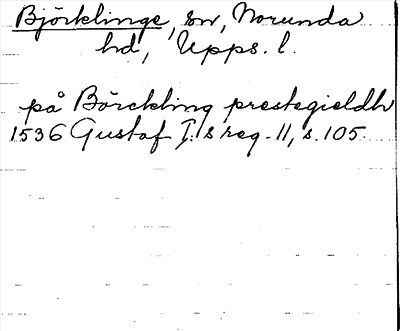 Björklinge, sn, Norunda
hd, Upps. l.
på Börckling prestegieldh
1536 Gustaf I:s reg. 11, s. 105